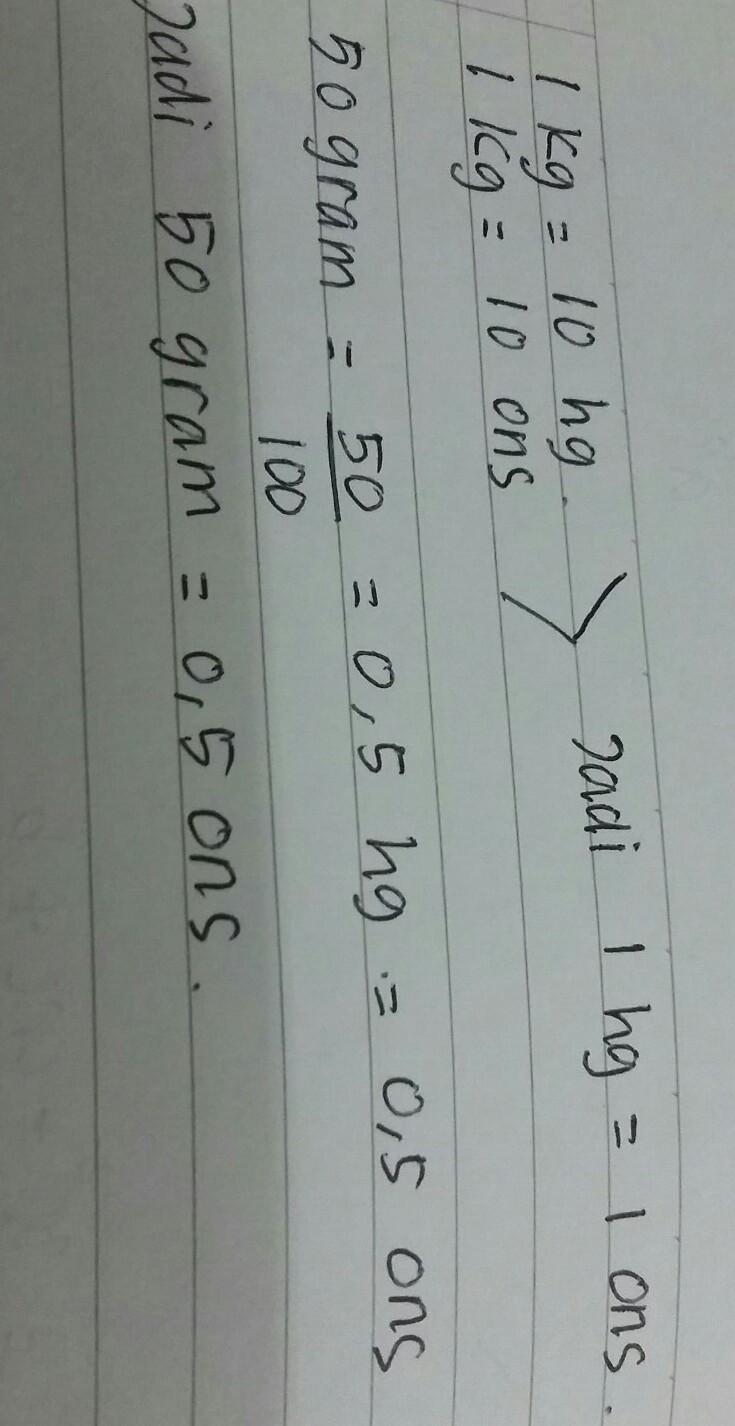 1 kg = 10 hg. > Jadi 1 hg = 1 ons.
1 kg = 10 ons
50 gram = 50/100 = 0,5 hg = 0,5 ons
Jadi 50 gram = 0,5 ons.